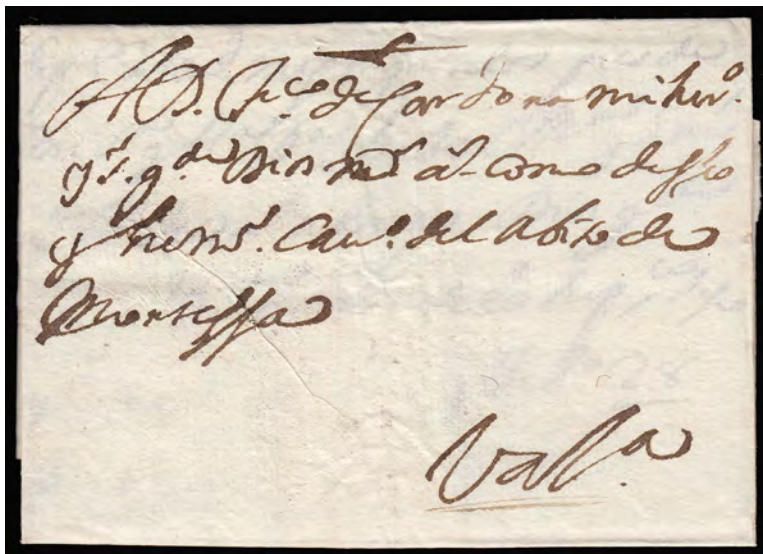 A D. Frco de Cardona mi herº.
gde Dios ms as como desseo
Cauº. del abito de
Montessa
Vala